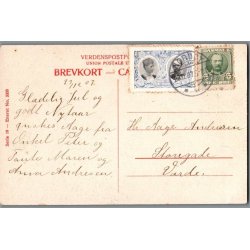 VERDENSPOSTF
UNION POSTALE U
BREVKORT — CA
23/12 07.
Glædelig Jul og
godt Nytaar
ønskes Aage fra
Onkel Peter og
Tante Maren og
Anna Andresen
Hr. Aage Andersen
Storegade
Varde.